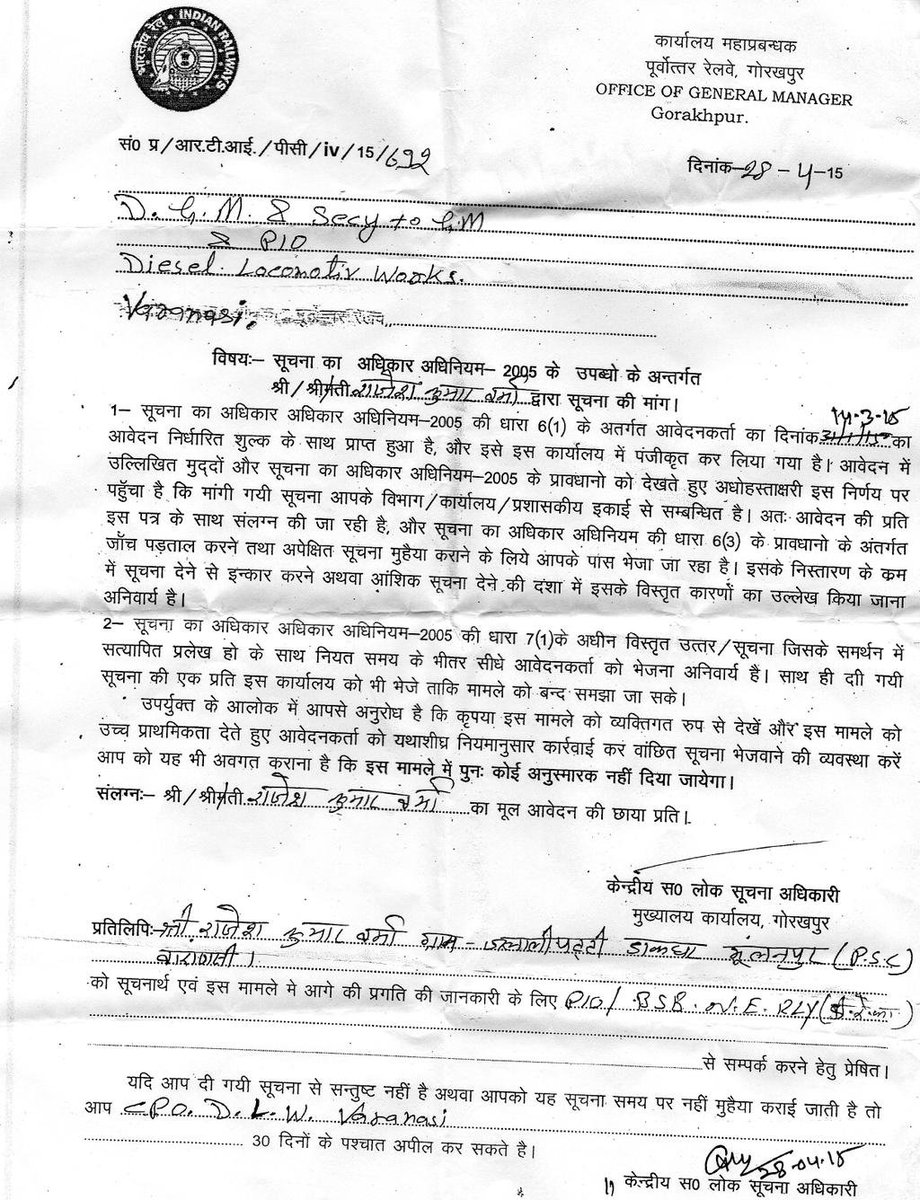 भारतीय रेल • INDIAN RAILWAYS
कार्यालय महाप्रबन्धक
पूर्वोत्तर रेलवे, गोरखपुर
OFFICE OF GENERAL MANAGER
Gorakhpur.
सं0 प्र/आर.टी.आई./पीसी/iv/15/692
दिनांक-28-4-15
D. G. M. & Secy to G.M
& PIO
Diesel Locomotiv Works.
Varanasi.
विषयः– सूचना का अधिकार अधिनियम– 2005 के उपब्धो के अन्तर्गत
श्री/श्रीमती राजेश कुमार वर्मा द्वारा सूचना की मांग।
14-3-15
1– सूचना का अधिकार अधिकार अधिनियम–2005 की धारा 6(1) के अतर्गत आवेदनकर्ता का दिनांक का
आवेदन निर्धारित शुल्क के साथ प्राप्त हुआ है, और इसे इस कार्यालय में पंजीकृत कर लिया गया है। आवेदन में
उल्लिखित मुद्दों और सूचना का अधिकार अधिनियम–2005 के प्रावधानो को देखते हुए अधोहस्ताक्षरी इस निर्णय पर
पहुँचा है कि मांगी गयी सूचना आपके विभाग/कार्यालय/प्रशासकीय इकाई से सम्बन्धित है। अतः आवेदन की प्रति
इस पत्र के साथ संलग्न की जा रही है, और सूचना का अधिकार अधिनियम की धारा 6(3) के प्रावधानो के अंतर्गत
जाँच पड़ताल करने तथा अपेक्षित सूचना मुहैया कराने के लिये आपके पास भेजा जा रहा है। इसके निस्तारण के क्रम
में सूचना देने से इन्कार करने अथवा आंशिक सूचना देने की दशा में इसके विस्तृत कारणों का उल्लेख किया जाना
अनिवार्य है।
2– सूचना का अधिकार अधिकार अधिनियम–2005 की धारा 7(1)के अधीन विस्तृत उत्तर/सूचना जिसके समर्थन में
सत्यापित प्रलेख हो के साथ नियत समय के भीतर सीधे आवेदनकर्ता को भेजना अनिवार्य है। साथ ही दी गयी
सूचना की एक प्रति इस कार्यालय को भी भेजे ताकि मामले को बन्द समझा जा सके।
उपर्युक्त के आलोक में आपसे अनुरोध है कि कृपया इस मामले को व्यक्तिगत रुप से देखें और इस मामले को
उच्च प्राथमिकता देते हुए आवेदनकर्ता को यथाशीघ्र नियमानुसार कार्रवाई कर वांछित सूचना भेजवाने की व्यवस्था करें
आप को यह भी अवगत कराना है कि इस मामले में पुनः कोई अनुस्मारक नहीं दिया जायेगा।
संलग्नः– श्री/श्रीमती राजेश कुमार वर्मा का मूल आवेदन की छाया प्रति।
केन्द्रीय स0 लोक सूचना अधिकारी
मुख्यालय कार्यालय, गोरखपुर
प्रतिलिपिः– श्री राजेश कुमार वर्मा ग्राम – जलालीपट्टी डाकघर भूलनपुर (P.S.C)
वाराणसी।
को सूचनार्थ एवं इस मामले मे आगे की प्रगति की जानकारी के लिए PIO/ BSB. N.E. RLY
से सम्पर्क करने हेतु प्रेषित।
यदि आप दी गयी सूचना से सन्तुष्ट नहीं है अथवा आपको यह सूचना समय पर नहीं मुहैया कराई जाती है तो
आप CPO. D. L. W. Varanasi
30 दिनों के पश्चात अपील कर सकते है।
28-04-15
केन्द्रीय स0 लोक सूचना अधिकारी